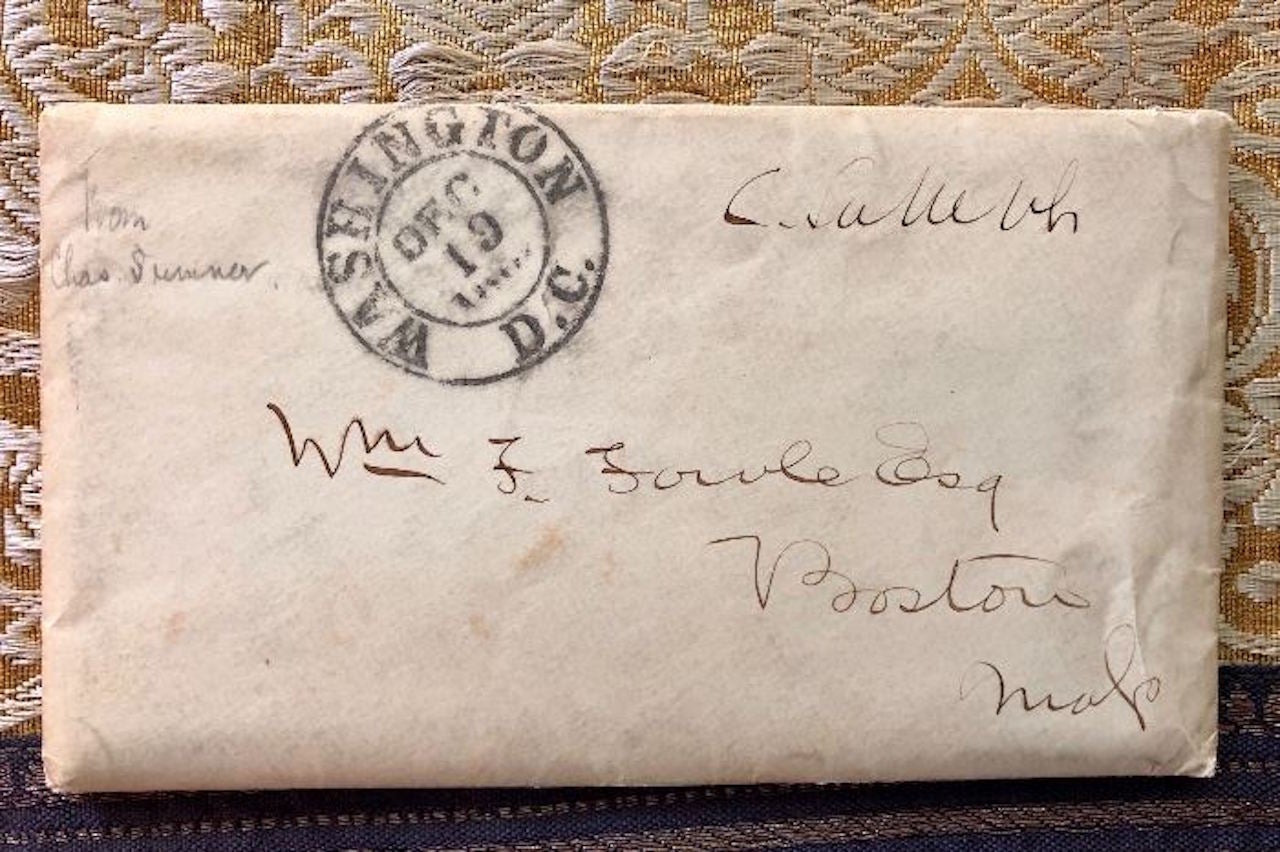 From
Chas. Sumner.
WASHINGTON D.C.
DEC
19
C.
Wm F. Fowle Esq
Boston
Mass